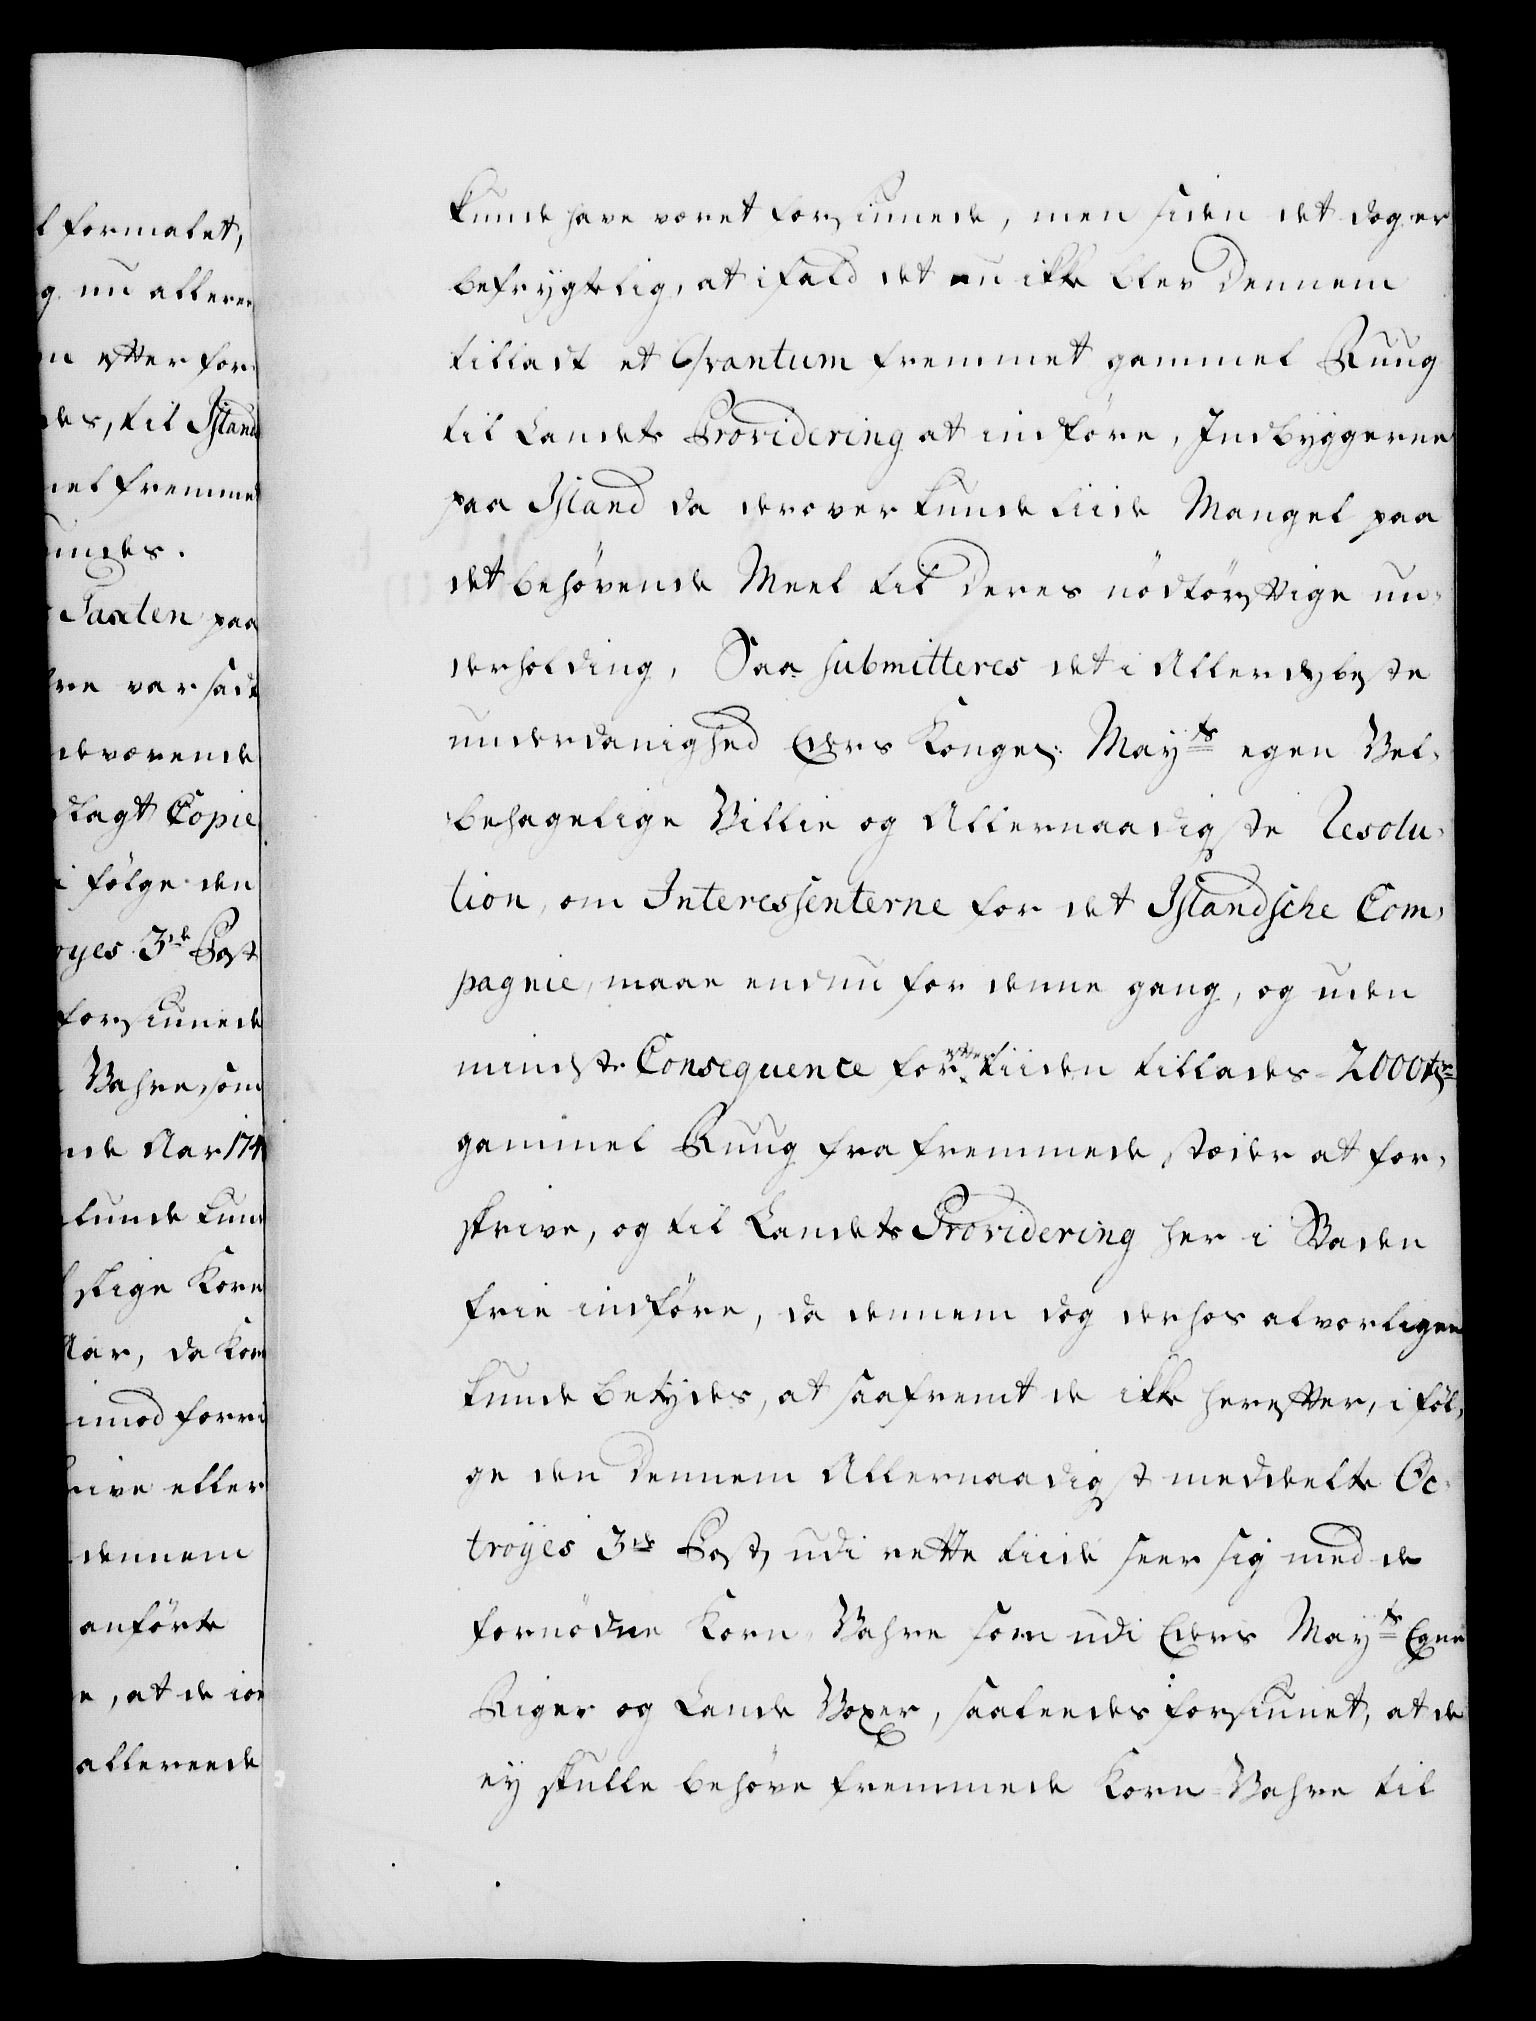 l formalet,
g nu alleree
n efter for
des, til Island
mel fremme
indes.
Taxten paa
re var sadt
deværende
lagt Copie
i følge den
oyes 3de Post
forsiunede
Vahre, som
nde Aar 174
lunde kun
stige Korn
Aar, da Korn
imod forri
rive eller
dennem
anförte
e, at de io
allereede
kunde have været forsiunede, men siden det dog er
befrygtelig, at ifald det nu ikke blev dennem
tilladt et Qvantum fremmet gammel Ruug
til Landets Providering at indföre, Indbyggerne
paa Island da derover kunde liide Mangel paa
det behövende Meel til deres nödtörftige un-
derholding, Saa submitteres det i Allerdybeste
underdanighed Ders Konges: Mayts egen Vel-
behagelige Villie og Allernaadigste Resolu-
tion, om Interessenterne for det Islandsche Com-
pagnie, maae endnu for denne gang, og uden
mindste Consequence for efter tiiden tillades 2000 tr
gammel Ruug fra fremmede stæder at for-
skrive, og til Landets Providering her i Staden
frie indföre, da dennem dog derhos alvorligen
kunde betydes, at saafremt de ikke herefter, i föl-
ge den dennem Allernaadigst meddeelte Oc-
troyes 3de Post, udi rette tiide seer sig med de
fornödne Korn-Vahre som udi Ders Mayts Egne
Riger og Lande Voxer, saaledes forsiunet, at de
ey skulle behöve fremmede Korn-Vahre til